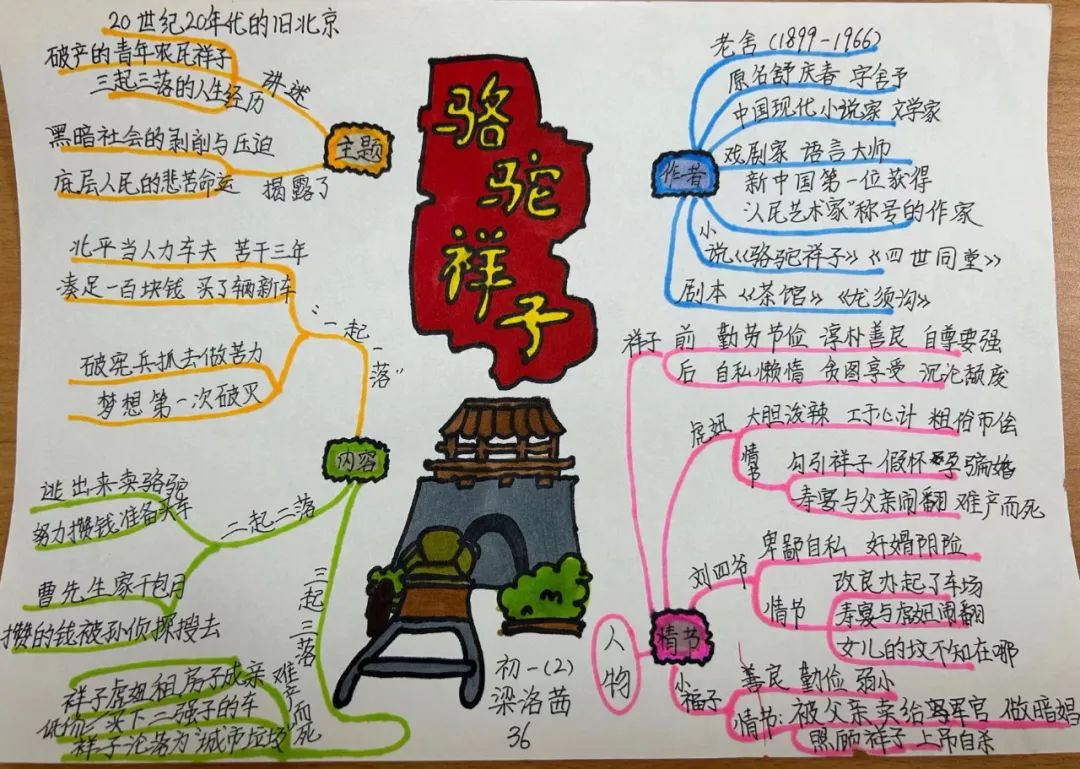 骆驼祥子
主题
讲述
20世纪20年代的旧北京
破产的青年农民祥子
三起三落的人生经历
揭露了
黑暗社会的剥削与压迫
底层人民的悲苦命运
内容
"一起一落"
北平当人力车夫 苦干三年
凑足一百块钱 买了辆新车
破宪兵抓去做苦力
梦想第一次破灭
二起二落
逃出来卖骆驼
努力攒钱准备买车
曹先生家干包月
攒的钱被孙侦探搜去
三起三落
祥子虎妞租房子成亲 难产而死
低价买下二强子的车
祥子沦落为"城市垃圾"
初一(2)
梁洛茜
36
作者
老舍(1899-1966)
原名舒庆春 字舍予
中国现代小说家 文学家
戏剧家 语言大师
新中国第一位获得
"人民艺术家"称号的作家
小说《骆驼祥子》《四世同堂》
剧本《茶馆》《龙须沟》
人物
情节
祥子 前 勤劳节俭 淳朴善良 自尊要强
后 自私懒惰 贪图享受 沉沦颓废
虎妞 大胆泼辣 工于心计 粗俗市侩
情节 勾引祥子 假怀孕骗婚
寿宴与父亲闹翻 难产而死
刘四爷 卑鄙自私 奸猾阴险
情节 改良办起了车场
寿宴与虎妞闹翻
女儿的坟不知在哪
小福子 善良 勤俭 弱小
情节:被父亲卖给军官 做暗娼
照顾祥子 上吊自杀